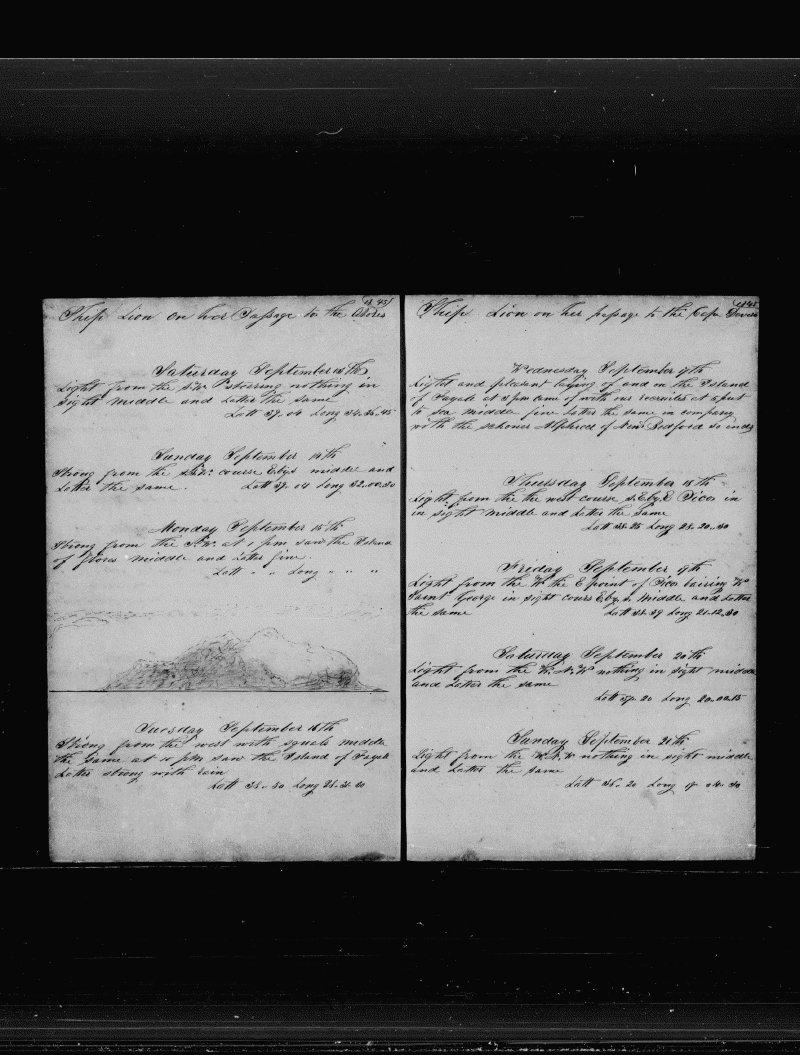 1845
Ship Lion on her Passage to the Azores
Saturday September 13th
Light from the S.W. steering nothing in
sight middle and Latter the same
Latt 39.04 Long 34.36.45
Sunday September 14th
Strong from the S.W. course Ebys middle and
Latter the same. Latt 39.04 Long 32.00.30
Monday September 15th
Strong from the S.W. At 1 pm saw the Island
of Flores middle and Latter fine.
Latt " " Long " " "
Tuesday September 16th
Strong from the west with squals middle
the same at 10 pm saw the Island of Fayal
Latter strong with rain
Latt 38.30 Long 28.31.10
1845
Ship Lion on her passage to the Cape Deverds
Wednesday September 17th
Light and pleasant laying of and on the Island
of Fayal at 3 pm came of with our recruits at put
to sea middle fine latter the same in company
with the schoner Alphred of New Bedford so ends
Thursday September 18th
Light from the the west course S.E.by.E Pico in
in sight middle and Latter the same
Latt 38.25 Long 28.20.30
Friday September 19th
Light from the W the E point of Pico bairing W
Saint George in sight cours E by S Middle and Latter
the same Latt 38.39 Long 21.12.30
Saturday September 20th
Light from the W.N.W nothing in sight middle
and Latter the same
Latt 37.20 Long 20.00.15
Sunday September 21th
Light from the W.N.W nothing in sight middle
and Latter the same
Latt 36.20 Long 04.30